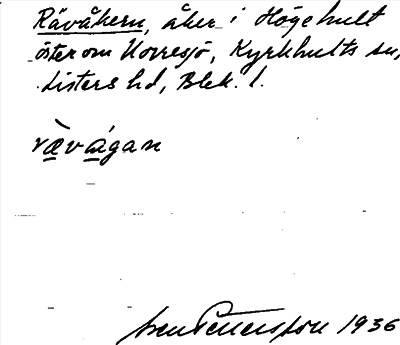 Rävåkern, åker i Högehult
öster om Norresjö, Kyrkhults sn,
Listers hd, Blek. l.
rævågan
Sven Pettersson 1936